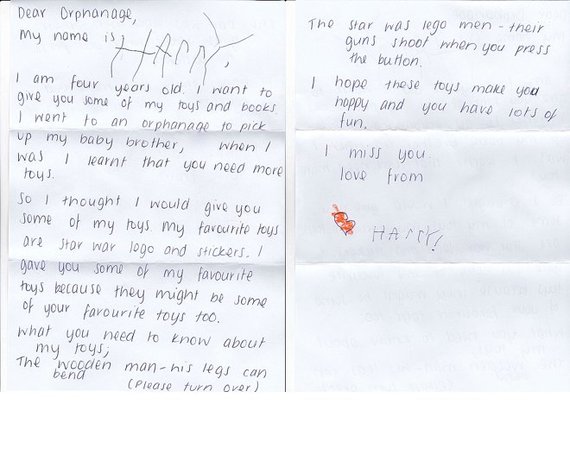 Dear Orphanage,
My name is HARRY,
I am four years old. I want to
give you some of my toys and books
I went to an orphanage to pick
up my baby brother, when I
was I learnt that you need more
toys.
So I thought I would give you
some of my toys. my favourite toys
are star war logo and stickers. I
gave you some of my favourite
toys because they might be some
of your favourite toys too.
what you need to know about
my toys;
The wooden man-his legs can
bend (Please turn over)
The star was lego men - their
guns shoot when you press
the button.
I hope these toys make you
happy and you have lots of
fun.
I miss you.
love from
HARRY!